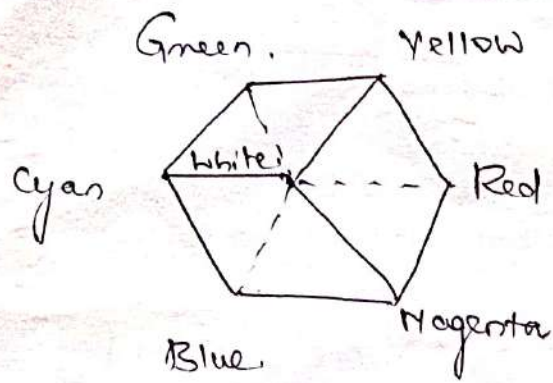 Green. Yellow
Cyan White Red
Blue. Magenta